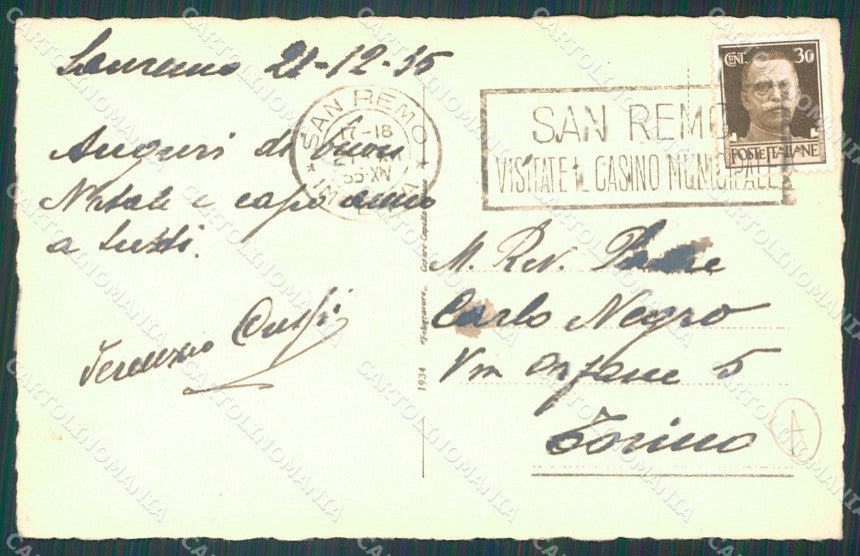 Sanremo 21-12-35
Auguri di buon
Natale e capo anno
a tutti.
SAN REMO
17-18
XIV
SAN REMO
VISITATE IL CASINO MUNICIPALE
CENT. 30
POSTE ITALIANE
M. Rev. Padre
Carlo Negro
Via Orfane 5
Torino
A
1934
CARTOLINOMANIA